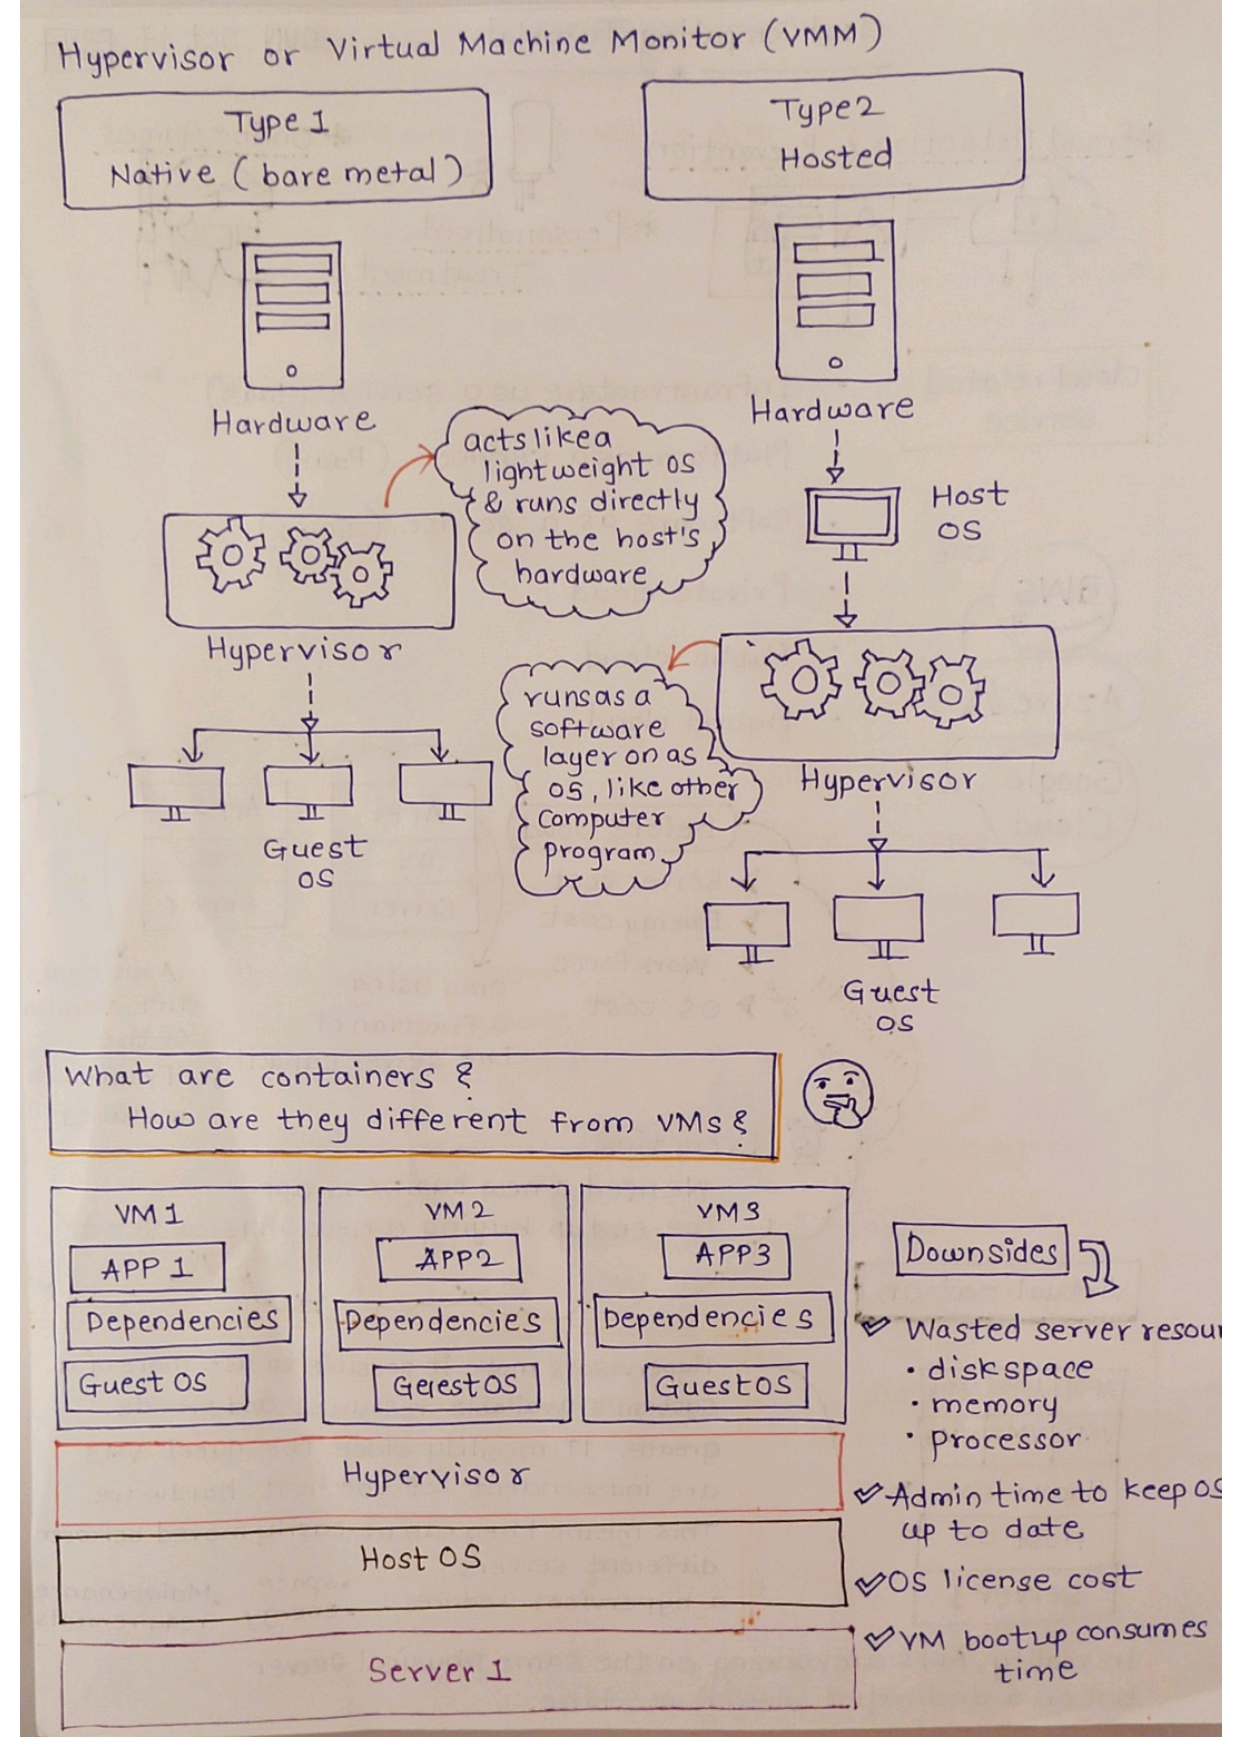 Hypervisor or Virtual Machine Monitor (VMM)
Type 1
Native (bare metal)
Type 2
Hosted
Hardware
Hardware
acts like a
lightweight OS
& runs directly
on the host's
hardware
Host
OS
Hypervisor
runs as a
software
layer on as
OS, like other
computer
program
Hypervisor
Guest
OS
Guest
OS
What are containers ?
How are they different from VMs ?
VM 1
APP 1
Dependencies
Guest OS
VM 2
APP2
Dependencies
Guest OS
VM3
APP3
Dependencies
Guest OS
Hypervisor
Host OS
Server 1
Downsides
Wasted server resou
• diskspace
• memory
• processor
Admin time to keep OS
up to date
OS license cost
VM bootup consumes
time